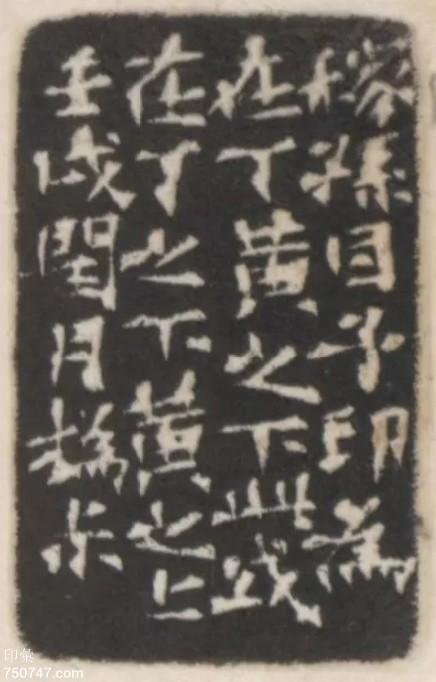 稼孫目予印為
在丁黃之下此或
在丁之下黃之上
壬戌閏月撝尗
印彙
750747.com